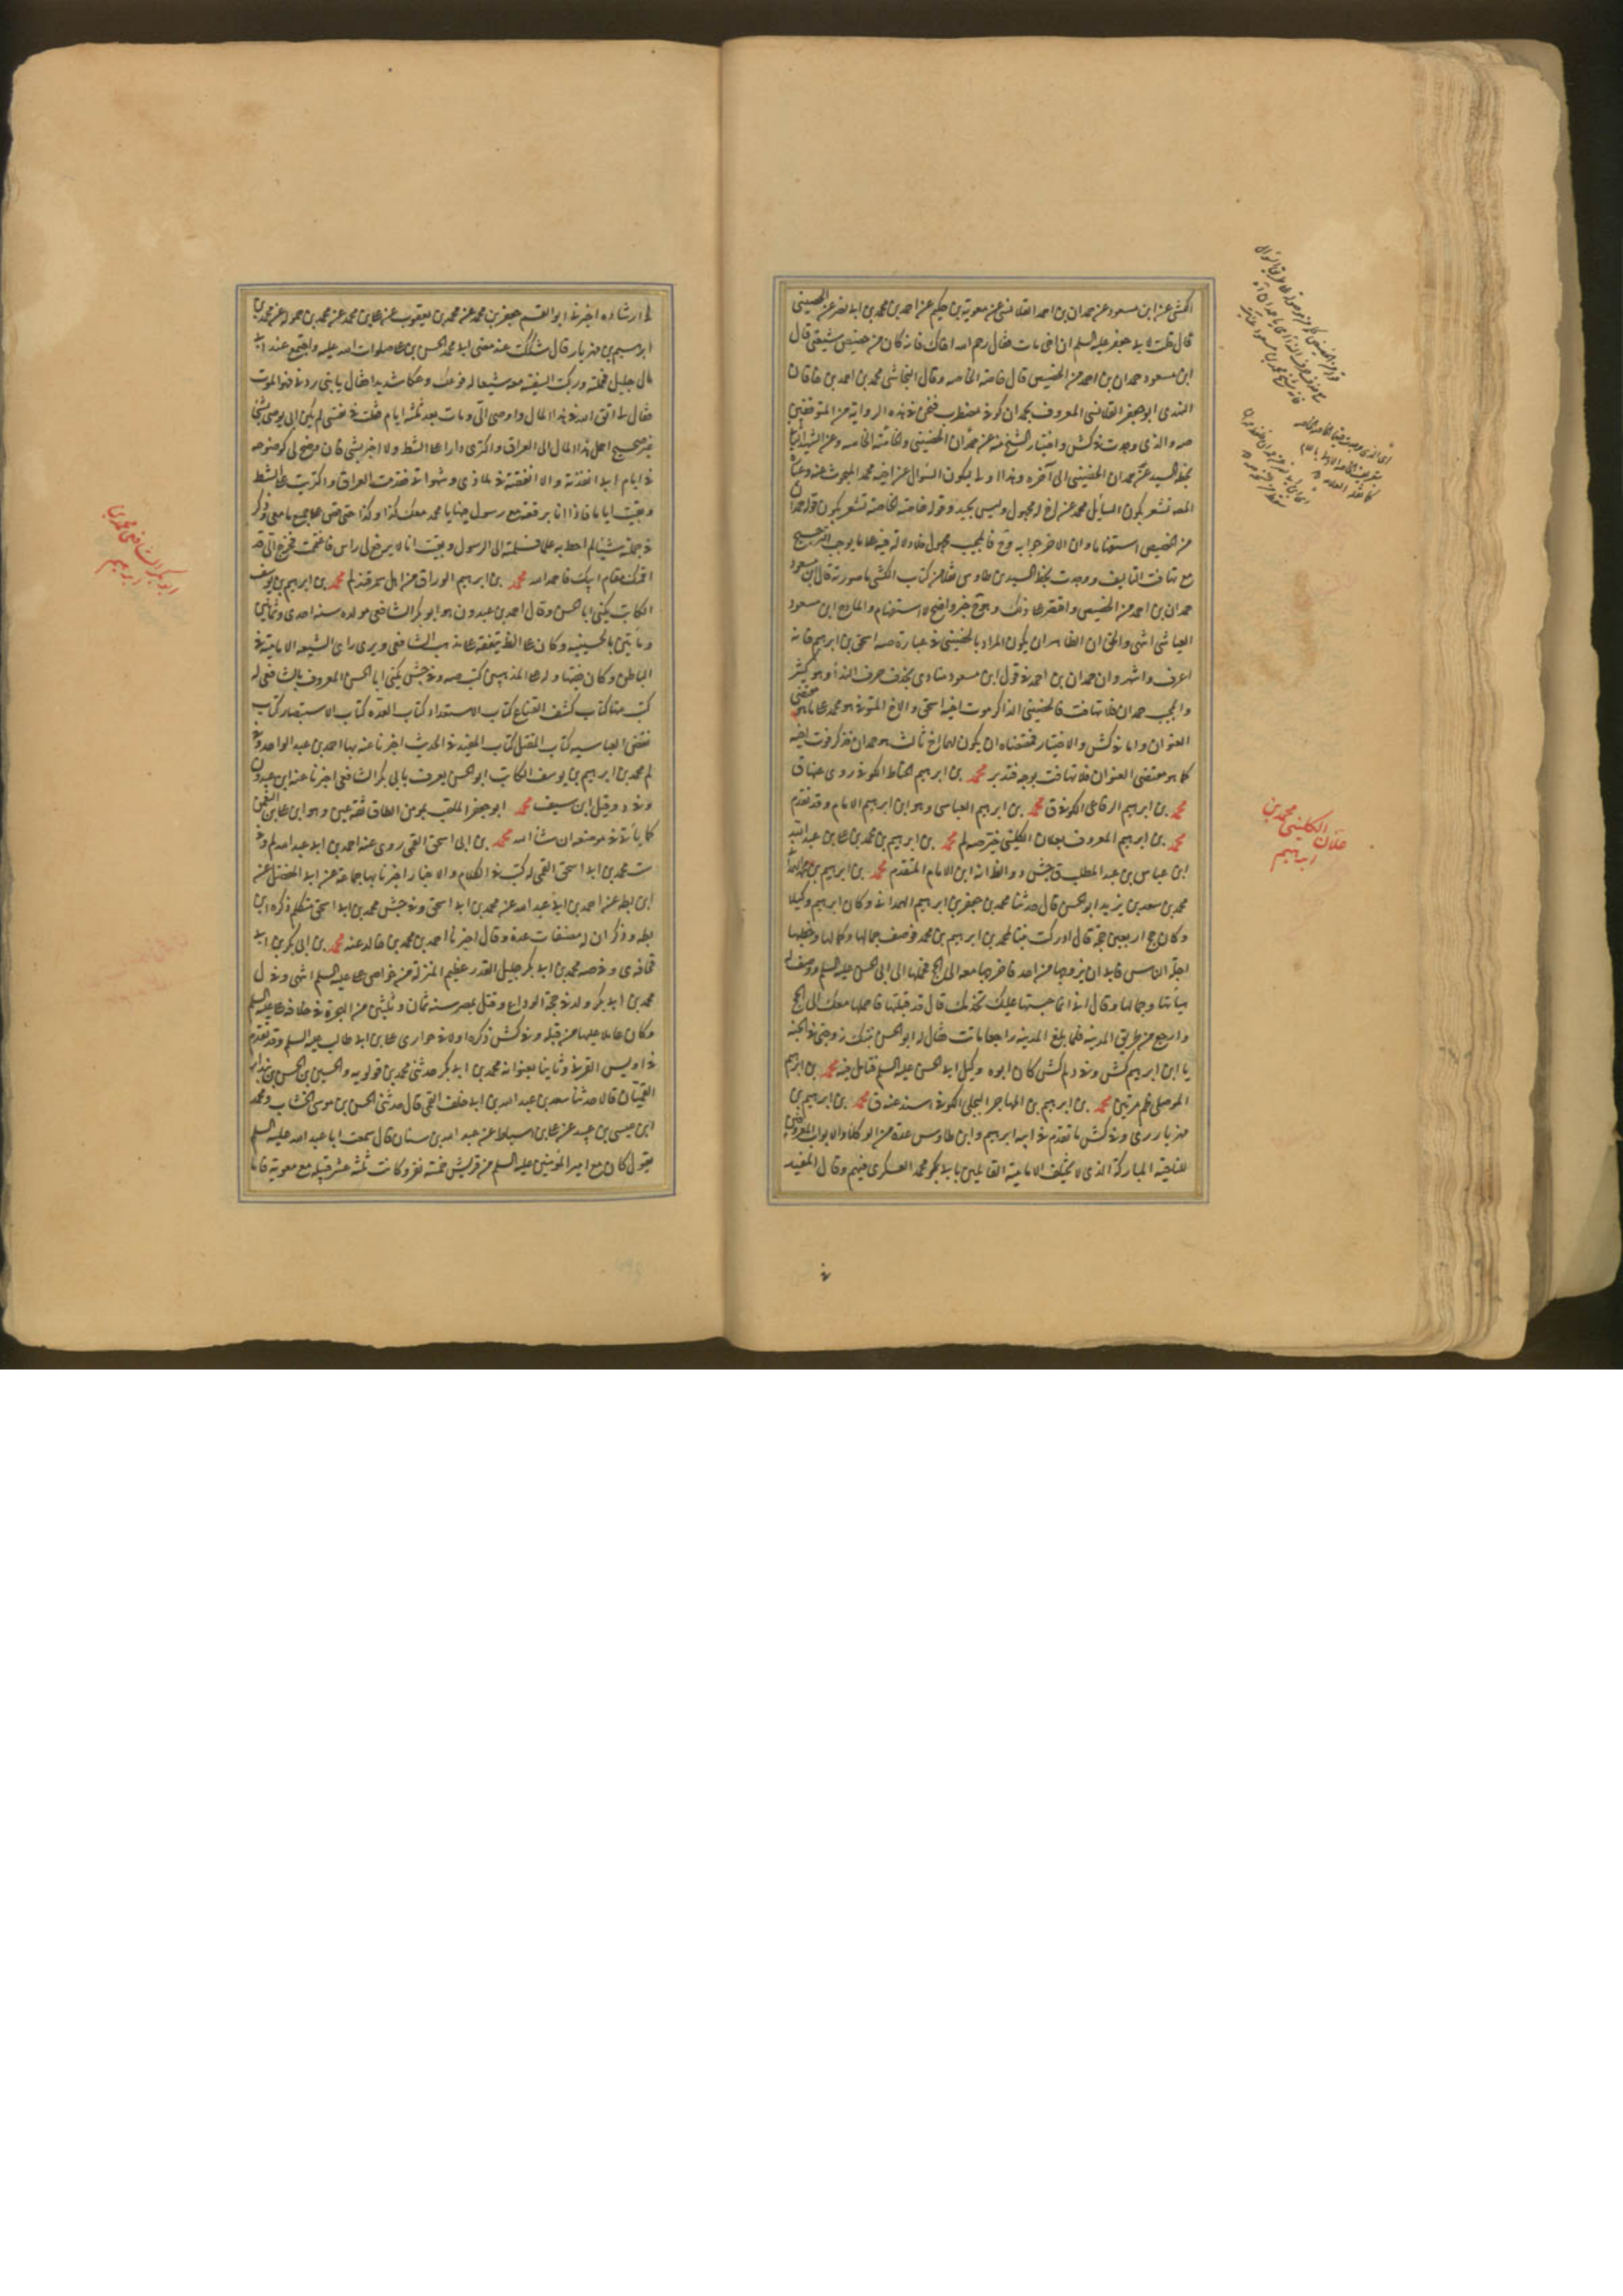 الكشى عن ابن مسعود عن حمدان بن احمد القلانسى عن معوية بن حكيم عن احمد بن محمد بن ابى نصر عن الحضينى
قال قلت لابى جعفر عليه السلم ان اخى مات فقال رحم الله اخاك فانه كان من خصيص شيعتى قال
ابن مسعود حمدان بن احمد من الخصيص قال خاصة الخاصة وقال النجاشى محمد بن احمد بن خاقان
النهدى ابو جعفر القلانسى المعروف بحمدان كوفى مضطرب ففى هذه الرواية من المتوقفين
صه والذى وجدت فى كش واختيار الشيخ منه عن حمدان الحضينى والخاصة الخاصة وعن الشهيد الثانى
بخط السيد عن حمدان الحضينى الى آخره وهذا اولى ليكون السؤال عن اخيه محمد المبحوث عنه
يكون السائل محمد عن اخ له مجهول وليس بجيد وقوله خاصة الخاصة تشعر بكون قوله حمدان
من الخصيص استفهاما وان الاخر جوابه وح فالمجيب مجهول فلا دلالة فيه على ما يوجب الترجيح
مع تهافت التاليف ووجدت بخط السيد بن طاوس نقلا من كتاب الكشى ما صورته قال ابن مسعود
حمدان بن احمد من الخصيص واقتصر على ذلك وهو ح خبر واضح لا استفهام والمادح ابن مسعود
العياشى انتهى والحق ان الظاهر ان يكون المراد بالحضينى فى عبارة صه اسحق بن ابراهيم فانه
اعرف واشهر وان حمدان بن احمد فى قول ابن مسعود منادى بحذف حرف النداء وهو كثير
والمجيب حمدان فلا تهافت فالحضينى الذاكر موت اخيه اسحق والاخ المتوفى هو محمد على ما هو مقتضى
العنوان واما فى كش والاختيار فمقتضاه ان يكون لهما اخ ثالث هو حمدان فذكر فوت اخيه
كما هو مقتضى العنوان فلا تهافت بوجه فتدبر محمد بن ابراهيم الحناط الكوفى روى عنهما ق
محمد بن ابراهيم الرفاعى الكوفى ق محمد بن ابراهيم العباسى وهو ابن ابراهيم الامام وقد تقدم
محمد بن ابراهيم المعروف بعلان الكلينى خير صه لم محمد بن ابراهيم بن محمد بن على بن عبد الله
ابن عباس بن عبد المطلب ق جش د والظ انه ابن الامام المتقدم محمد بن ابراهيم بن محمد الهمدانى
محمد بن سعد بن يزيد ابو الحسن قال حدثنا محمد بن جعفر بن ابراهيم الهمدانى وكان ابراهيم وكيلا
وكان حج اربعين حجة قال ادركت بنتا لمحمد بن ابراهيم بن محمد فوصف جمالها وكمالها وخطبها
اجلة الناس فابى ان يزوجها من احد فاخرجها معه الى الحج فحملها الى ابى الحسن عليه السلم ووصف له
هيأتها وجمالها وقال انى انما حبستها عليك تخدمك قال قد قبلتها فاحملها معك الى الحج
وارجع من طريق المدينة فلما بلغ المدينة راجعا ماتت فقال له ابو الحسن بنتك زوجتى فى الجنة
يا ابن ابراهيم كش وفى د لم كش كان ابوه وكيل ابى الحسن عليه السلم فتامل فيه محمد بن ابراهيم
الموصلى ظم مرتين محمد بن ابراهيم بن المهاجر البجلى الكوفى اسند عنه ق محمد بن ابراهيم بن
مهزيار رى وفى كش ما تقدم فى ابيه ابراهيم وابن طاوس عده من الوكلاء والابواب المعروفين
للناحية المباركة الذى لا يختلف الامامية القائلين بابى محمد العسكرى فيهم وقال المفيد
علان الكلينى محمد بن
ابراهيم
فى ارشاده اخبرنى ابو القسم جعفر بن محمد عن محمد بن يعقوب عن على بن محمد عن محمد بن حمويه عن محمد بن
ابراهيم بن مهزيار قال شككت عند مضى ابى محمد الحسن بن على صلوات الله عليه واجتمع عند ابى
مال جليل فحمله وركبت السفينة معه مشيعا له فوعك وعكا شديدا فقال يا بنى ردنى فهو الموت
فقال لى اتق الله فى هذا المال واوصى الى ومات بعد ثلثة ايام فقلت فى نفسى لم يكن ابى يوصى بشئ
غير صحيح احمل هذا المال الى العراق واكترى دارا على الشط ولا اخبر بشئ فان وضح لى كوضوحه
فى ايام ابى انفذته والا انفقته فى ملاذى وشهواتى فقدمت العراق واكتريت دارا على الشط
وبقيت اياما فاذا انا برقعة مع رسول فيها يا محمد معك كذا وكذا حتى قص على جميع ما معى وذكر
فى جملته شيئا لم احط به علما فسلمته الى الرسول وبقيت اياما لا يرفع لى راس فاغتممت فخرج الى قد
اقمناك مقام ابيك فاحمد الله محمد بن ابراهيم الوراق من اهل سمرقند لم محمد بن ابراهيم بن يوسف
الكاتب يكنى ابا الحسن وقال احمد بن عبدون هو ابو بكر الشافعى مولده سنة احدى وثمانين
ومأتين بالحسينية وكان على الظ يتفقه على مذهب الشافعى ويرى راى الشيعة الامامية فى
الباطن وكان فقيها وله على المذهبين كتب صه وفى جش يكنى ابا الحسن المعروف بالشافعى له
كتب منها كتاب كشف القناع كتاب الاستعداد كتاب العدة كتاب الاستبصار كتاب
نقض العباسية كتاب المفتل كتاب المفيد فى الحديث اخبرنا عنه بها احمد بن عبد الواحد وفى
لم محمد بن ابراهيم بن يوسف الكاتب ابو الحسن يعرف بابى بكر الشافعى اخبرنا عنه ابن عبدون
وفى د وقيل ابن سيف محمد ابو جعفر الملقب بمومن الطاق ثقة عين وهو ابن على بن النعمن
كما ياتى فى موضعه ان شاء الله محمد بن ابى اسحق القمى روى عنه احمد بن ابى عبد الله لم وفى
ست محمد بن ابى اسحق القمى له كتب فى الكلام والاخبار اخبرنا بها جماعة عن ابى المفضل عن
ابن بطة عن احمد بن ابى عبد الله عن محمد بن ابى اسحق وفى جش محمد بن ابى اسحق متكلم ذكره ابن
بطة وذكر ان له مصنفات عدة وقال اخبرنا احمد بن محمد بن خالد عنه محمد بن ابى بكر بن ابى
قحافة ى وفى صه محمد بن ابى بكر جليل القدر عظيم المنزلة من خواص على عليه السلم انتهى وفى ل
محمد بن ابى بكر ولد فى حجة الوداع وقتل بمصر سنة ثمان وثلثين من الهجرة فى خلافة على عليه السلم
وكان عاملا عليها من قبله وفى كش ذكره اولا فى حوارى على بن ابى طالب عليه السلم وقد تقدم
فى اويس القرنى وثانيا بعنوانه محمد بن ابى بكر حدثنى محمد بن قولويه والحسين بن الحسن بن بندار
القميان قالا حدثنا سعد بن عبد الله بن ابى خلف القمى قال حدثنى الحسن بن موسى الخشاب ومحمد
ابن عيسى بن عبيد عن على بن اسباط عن عبد الله بن سنان قال سمعت ابا عبد الله عليه السلم
يقول كان مع امير المؤمنين عليه السلم من قريش خمسة نفر وكانت ثلثة عشر قبيلة مع معوية فاما
ابو بكر الشافعى محمد بن
ابراهيم